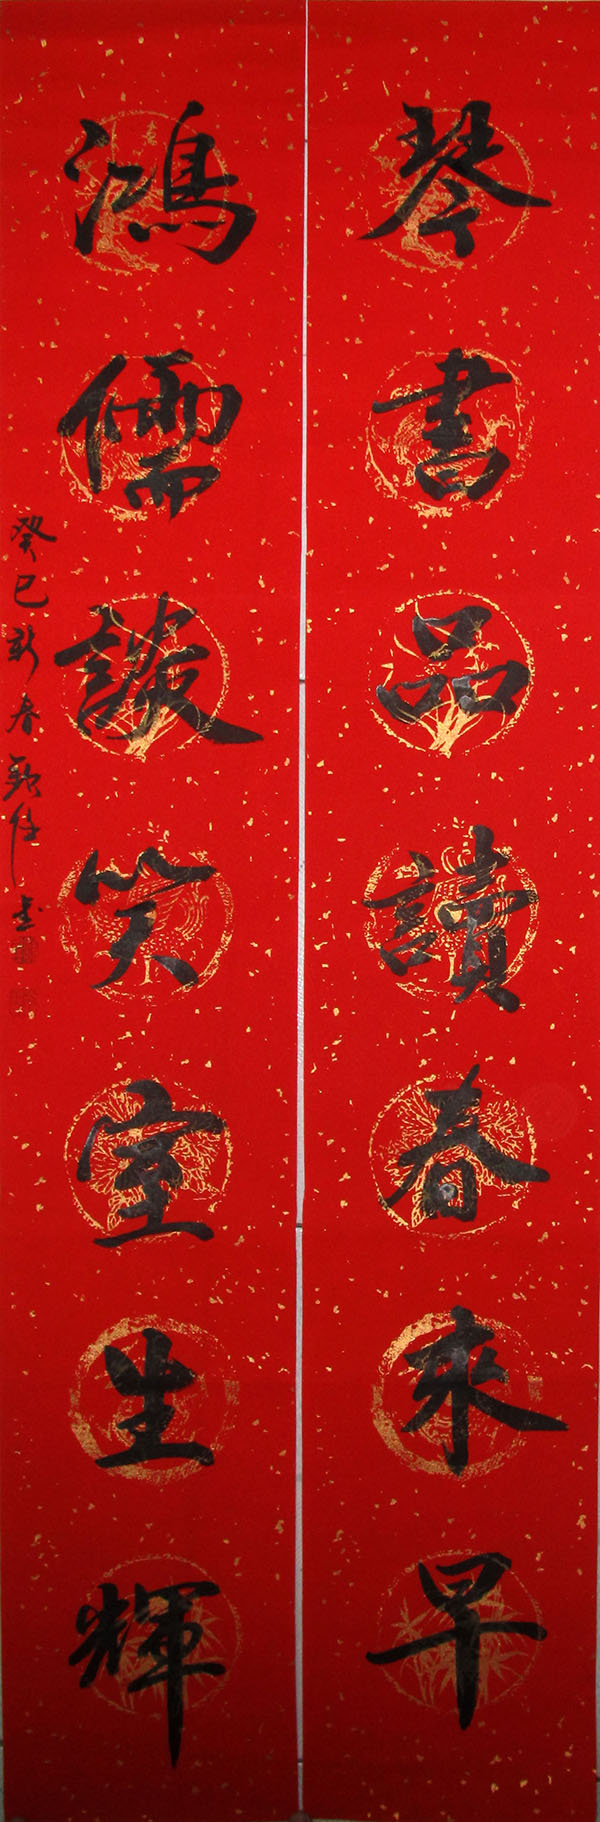 琴書品讀春來早
鴻儒談笑室生輝
癸巳新春